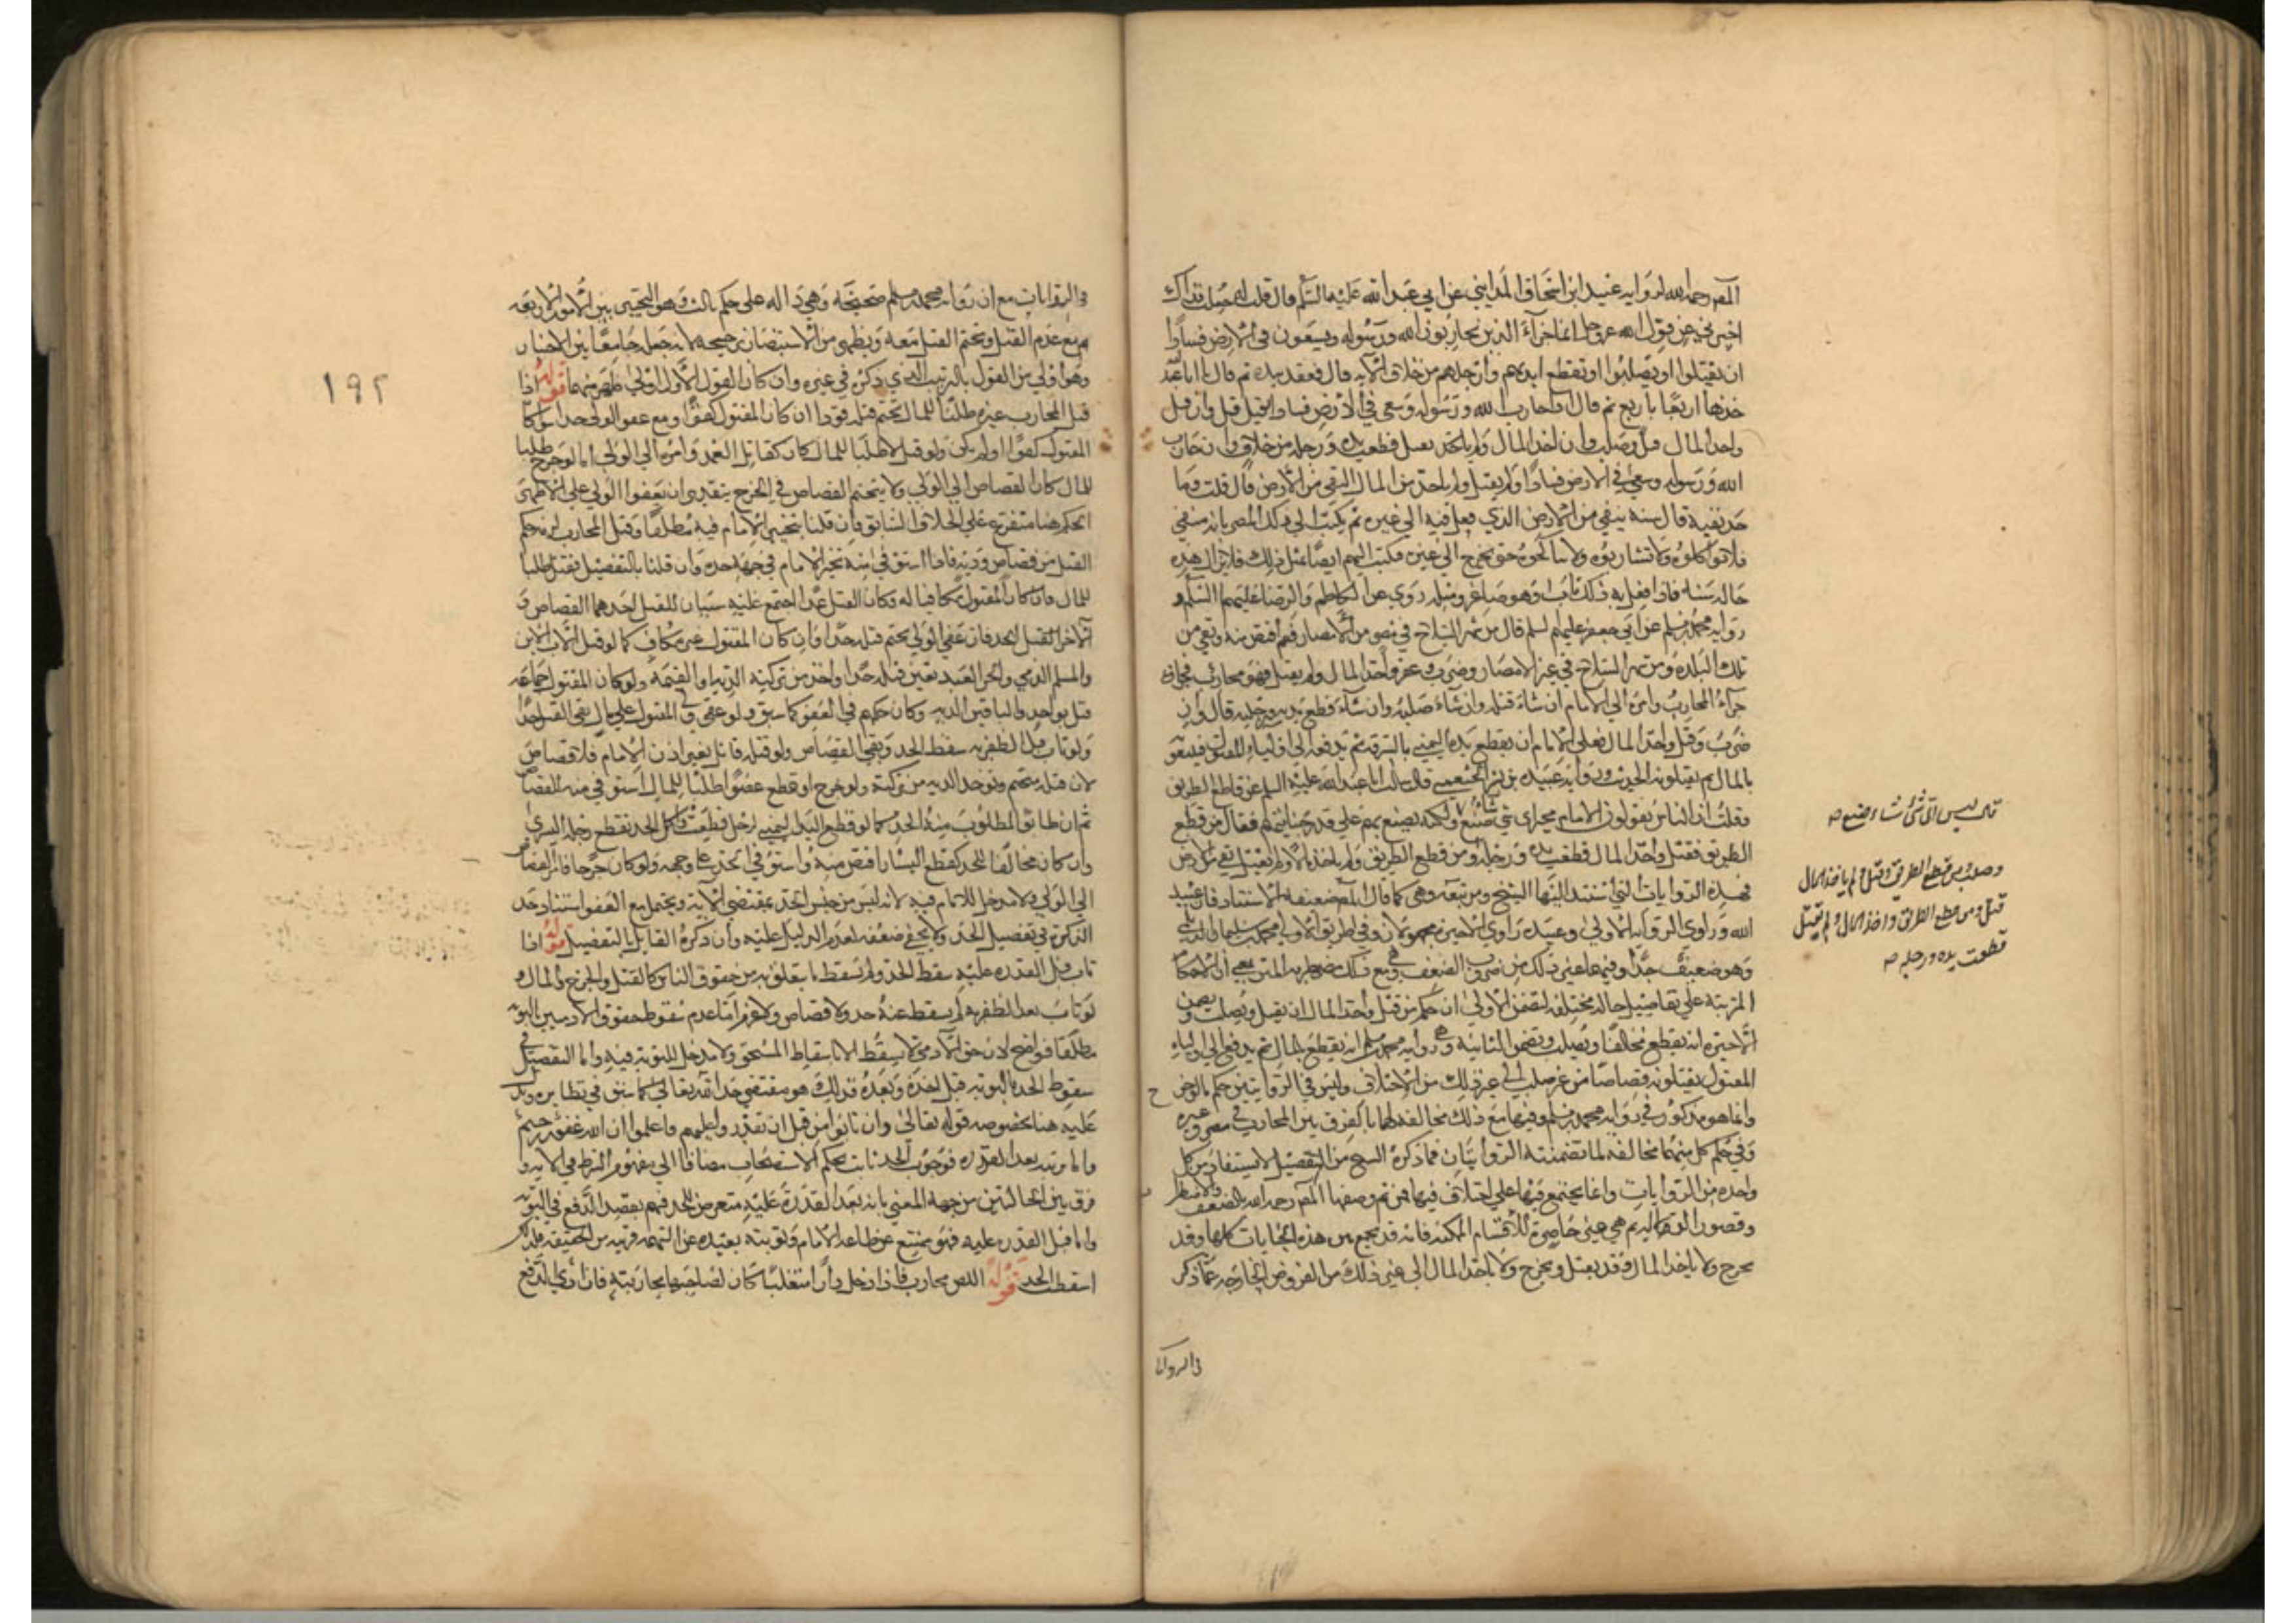 المص رحمه الله لرواية عبيد ابن اسحاق المدايني عن ابي عبد الله عليه السلم قال قلت له جعلت فداك
اخبرني عن قول الله عز وجل انما جزآء الذين يحاربون الله ورسوله ويسعون في الارض فسادا
ان يقتلوا او يصلبوا او تقطع ايديهم وارجلهم من خلاف الآيه قال فعقد بيده ثم قال يا ابا عبد
خذها اربعا باربع ثم قال اذا حارب الله ورسوله وسعى في الارض فسادا فقتل قتل وان قتل
واخذ المال قتل وصلب وان اخذ المال ولم يقتل قطعت يده ورجله من خلاف وان حارب
الله ورسوله وسعى في الارض فسادا ولم يقتل ولم ياخذ من المال نفي من الارض قال قلت وما
حد نفيه قال سنة ينفى من الارض الذي فعل فيه الى غيره ثم يكتب الى ذلك المصر بانه منفي
فلا تواكلوه ولا تشاربوه ولا تناكحوه حتى يخرج الى غيره فيكتب اليهم ايضا بمثل ذلك فلا يزال هذه
حاله سنة فاذا فعل به ذلك تاب وهو صاغر ومثله روي عن الكاظم والرضا عليهما السلم و
رواية محمد بن مسلم عن ابي جعفر عليه السلم قال من شهر السلاح في مصر من الامصار فعقر اقتص منه ونفي من
تلك البلدة ومن شهر السلاح في غير الامصار وضرب وعقر واخذ المال ولم يقتل فهو محارب فجزاؤه
جزآء المحارب وامره الى الامام ان شاء قتله وان شاء صلبه وان شاء قطع يده ورجله قال وان
ضرب وقتل واخذ المال فعلى الامام ان يقطع يده اليمنى بالسرقة ثم يدفعه الى اولياء المقتول فيتبعونه
بالمال ثم يقتلونه الحديث ورواية عبيدة بن بشر الخثعمي قال سالت ابا عبد الله عليه السلم عن قاطع الطريق
وقلت ان الناس يقولون الامام مخير اي شي شاء صنع ولكنه يصنع بهم على قدر جناياتهم فقال من قطع
الطريق فقتل واخذ المال قطعت يده ورجله ومن قطع الطريق ولم ياخذ المال ولم يقتل نفي من الارض
فهذه الروايات التي استند اليها الشيخ ومن تبعه وهي كما قال المص ضعيفة الاسناد فان عبيد
الله وراوي الرواية الاولى وعبيدة راوي الاخيرة مجهولان وفي طريق الاولى محمد بن سليمان الديلمي
وهو ضعيف جدا وفيها غير ذلك من ضروب الضعف وهي مع ذلك مضطربة المتن بمعنى ان الاحكام
المترتبة على تفاصيل حاله مختلفة لتضمن الاولى ان حكم من قتل واخذ المال ان يقتل ويصلب وتضمن
الاخيرة انه يقطع مخالفا ويصلب وتضمن الثانية وهي رواية محمد بن مسلم انه يقطع بالمال ثم يدفع الى اولياء
المقتول يقتلونه قصاصا من غير صلب الى غير ذلك من الاختلاف وليس في الروايتين حكم بالجرح
وانما هو مذكور في رواية محمد بن مسلم وفيها مع ذلك مخالفة لهما بالفرق بين المحارب في مصر وغيره
وفي حكم كل منهما مخالفه لما تضمنته الروايتان فما ذكره الشيخ من التفصيل لا يستفاد من كل
واحدة من الروايات وانما يجتمع فيها على اختلاف فيها فمن ثم وصفها المص رحمه الله بالضعف والاضطراب
وقصور الدلالة ثم هي غير حاصرة للاقسام الممكنة فانه قد يجمع بين هذه الجنايات كلها وقد
يجرح ولا ياخذ المال وقد يقتل ويجرح ولا ياخذ المال الى غير ذلك من الفروض الخارجة عما ذكر
قال ليس اى شئ شاء صنع صه
وصلب ومن قطع الطريق وقتل ولم ياخذ المال
قتل ومن قطع الطريق واخذ المال ولم يقتل
قطعت يده ورجله صه
في الروايات
١٩٢
في الروايات مع ان رواية محمد بن مسلم صحيحة وهي دالة على حكم ثالث وهو التخيير بين الامور الاربعه
مع عدم القتل وتحتم القتل معه ويظهر من الاستبصار ترجيحه لانه جعله جامعا بين الاخبار
وهو اولى من القول بالترتيب الذي ذكره في غيره وان كان القول الاول اولى ظهر منهما قوله اذا
قتل المحارب غيره طلبا للمال تحتم قتله قودا ان كان المقتول كفؤا ومع عفو الولي حدا سواء كان
المقتول كفؤا او لم يكن ولو قتل لا طلبا للمال كان كقاتل العمد وامره الى الولي اما لو جرح طلبا
للمال كان القصاص الى الولي ولا يتحتم القصاص في الجرح بتقدير ان يعفو الولي على الاظهر
الحكم هنا متفرع على الخلاف السابق فان قلنا بتخيير الامام فيه مطلقا وقتل المحارب لزمه حكم
القتل من قصاص ودية فاذا استوفي منه تخير الامام في جهة حده وان قلنا بالتفصيل فقتل طلبا
للمال فان كان المقتول مكافيا له وكان القتل عمدا اجتمع عليه سببان للقتل احدهما القصاص و
الآخر القتل للحد فان عفي الولي تحتم قتله حدا وان كان المقتول غير مكاف كما لو قتل الاب الابن
والمسلم الذمي والحر العبد تعين قتله حدا واخذ من تركته الدية او القيمة ولو كان المقتول جماعة
قتل بواحد وللباقين الدية وكان حكمهم في العفو كما سبق ولو عفي ولي المقتول على مال بقي القتل حدا
ولو تاب قبل الظفر به سقط الحد وبقي القصاص ولو قتله قاتل بغير اذن الامام فلا قصاص
لان قتله متحتم وتوخذ الدية من تركته ولو جرح او قطع عضوا طلبا للمال استوفي منه القصاص
ثم ان طابق المطلوب منه الحد كما لو قطع اليد اليمنى لرجل قطعت وكمل الحد بقطع رجله اليسرى
وان كان مخالفا للحد كقطع اليسار اقتص منه واستوفي الحد على وجهه ولو كان جرحا فامر القصاص
الى الولي ولا مدخل للامام فيه لانه ليس من جنس الحد بمقتضى الآية ويحتمل مع العفو استناد حد
الذكرى تفصيل الحد ولا يخفى ضعفه لعدم الدليل عليه وان ذكره القايل بالتفصيل قوله اذا
تاب قبل القدرة عليه سقط الحد ولم يسقط ما يتعلق به من حقوق الناس كالقتل والجرح والمال و
لو تاب بعد الظفر به لم يسقط عنه حد ولا قصاص ولا غرم اما عدم سقوط حقوق الآدميين بالتوبة
مطلقا فواضح لان حق الآدمي لا يسقط الا باسقاط المستحق ولا مدخل للتوبة فيه واما التفصيل في
سقوط الحد بالتوبة قبل اخذه وبعده فذلك هو مقتضى حد الله تعالى كما سبق في نظايره ويدل
عليه هنا بخصوصه قوله تعالى وان تابوا من قبل ان تقدروا عليهم فاعلموا ان الله غفور رحيم
واما توبته بعد القدرة فوجوب الحد ثابت بحكم الاستصحاب مضافا الى مفهوم الشرط في الآية و
فرق بين الحالتين من جهة المعنى بانه بعد القدرة عليه متعرض للحد فهم بقصد الدفع في التوبة
واما قبل القدرة عليه فهو ممتنع عن طاعة الامام وتوبته بعيدة عن التهمة قريبة من الحقيقة فلذلك
اسقطت الحد قوله اللص محارب فاذا دخل دارا متغلبا كان لصاحبها محاربته فان ادى الدفع